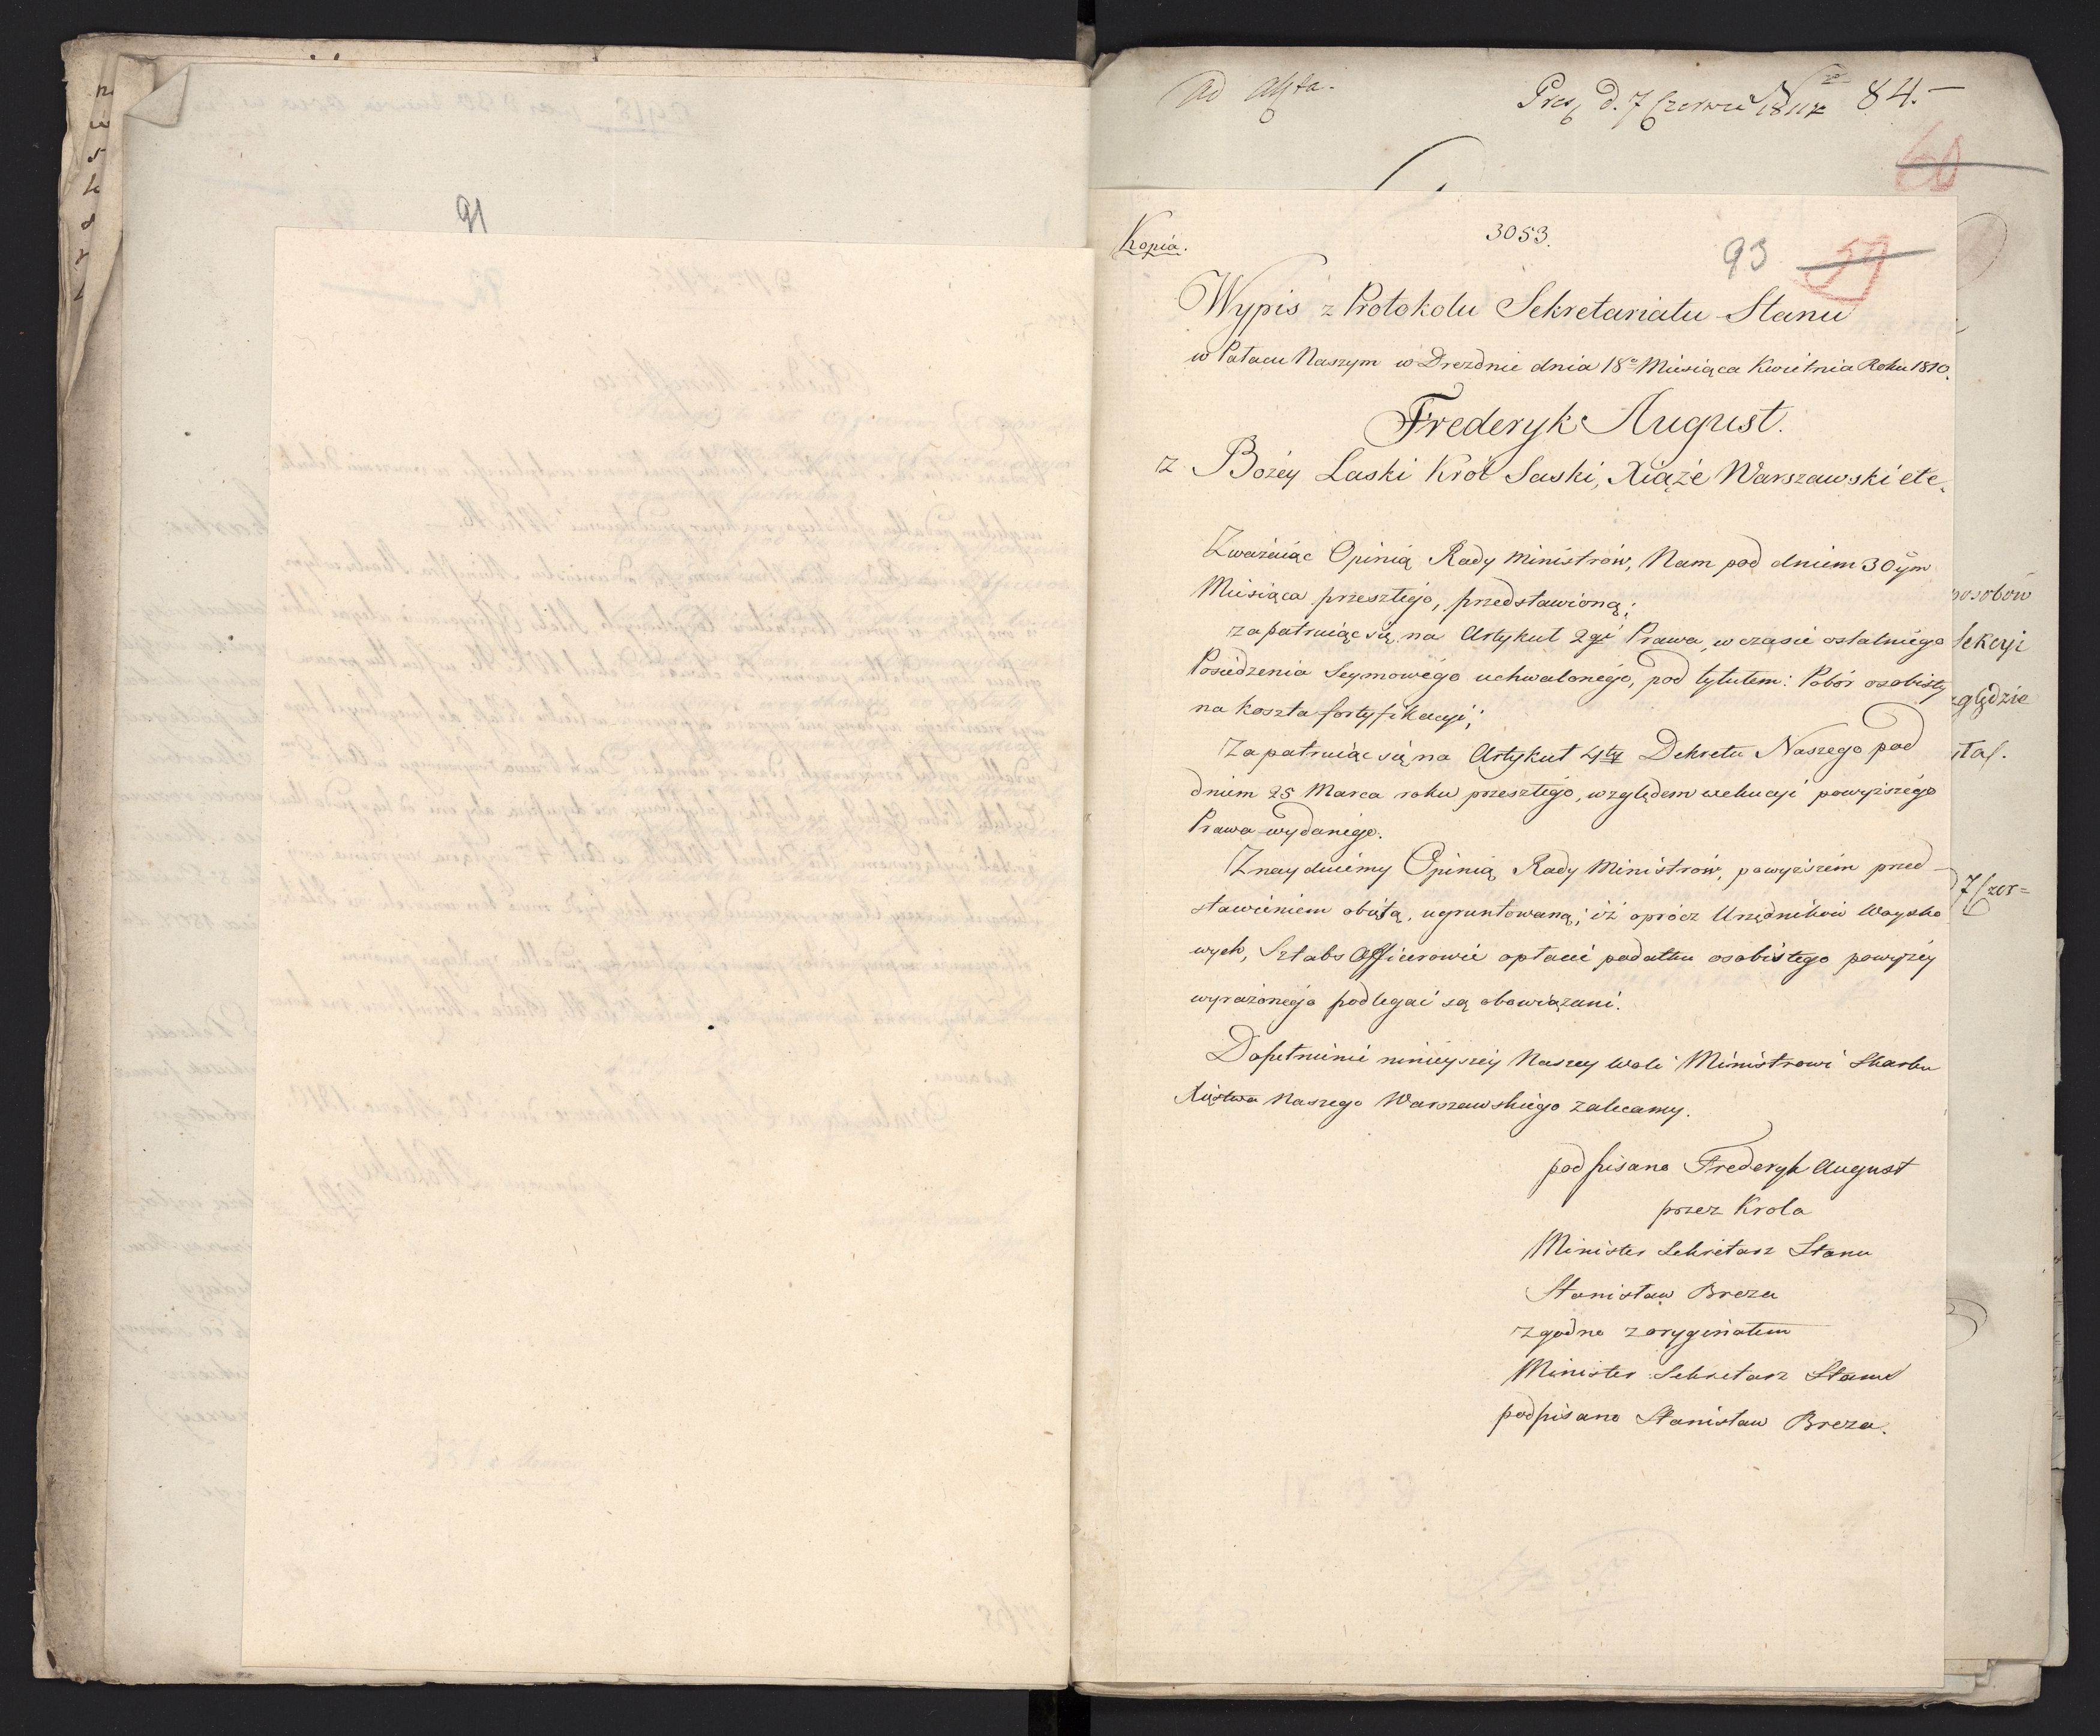 91
Ad Acta.
Pres. d. 7 Czerwca 1811 r
Nro 84.
60
Kopia.
3053.
93
59
Wypis z Protokołu Sekretariatu Stanu
w Pałacu Naszym w Dreznie dnia 18o Miesiąca Kwietnia Roku 1810.
Frederyk August.
z Bożey Laski Krol Saski, Xiąże Warszawski etc.
Zważaiąc Opinią Rady Ministrów, Nam pod dniem 30ym
Miesiąca przeszłego, przedstawioną;
zapatruiąc się na Artykuł 2gi Prawa, w czasie ostatniego
Posiedzenia Seymowego uchwalonego, pod tytułem: Pobór osobisty
na koszta fortyfikacyi;
Zapatruiąc się na Artykuł 4ty Dekretu Naszego pod
dniem 25 Marca roku przeszłego, względem exekucyi powyższego
Prawa wydanego.
Znayduiemy Opinią Rady Ministrów, powyższem przed-
stawieniem obiętą, ugruntowaną; iż oprócz Urzędników Woysko
wych, Sztabs Officerowie opłacie podatku osobistego powyżey
wyrażonego podlegać są obowiązani.
Dopełnienie ninieyszey Naszey woli Ministrowi Skarbu
Xięstwa Naszego Warszawskiego zalecamy.
podpisano Frederyk August
przez Krola
Minister Sekretarz Stanu
Stanisław Breza
zgodno z oryginałem
Minister Sekretarz Stanu
podpisano Stanisław Breza.
posobów
Sekcyi
7 Czer=